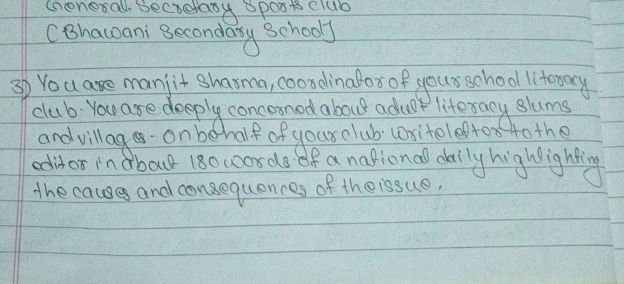 General. Secretary Sports club
(Bhawani Secondary School]
3) You are manjit Sharma, coordinator of your school literacy
club. You are deeply concerned about adult literacy slums
and villages. on behalf of your club. write letter to the
editor in about 180 words of a national daily highlighting
the causes and consequences of the issue.